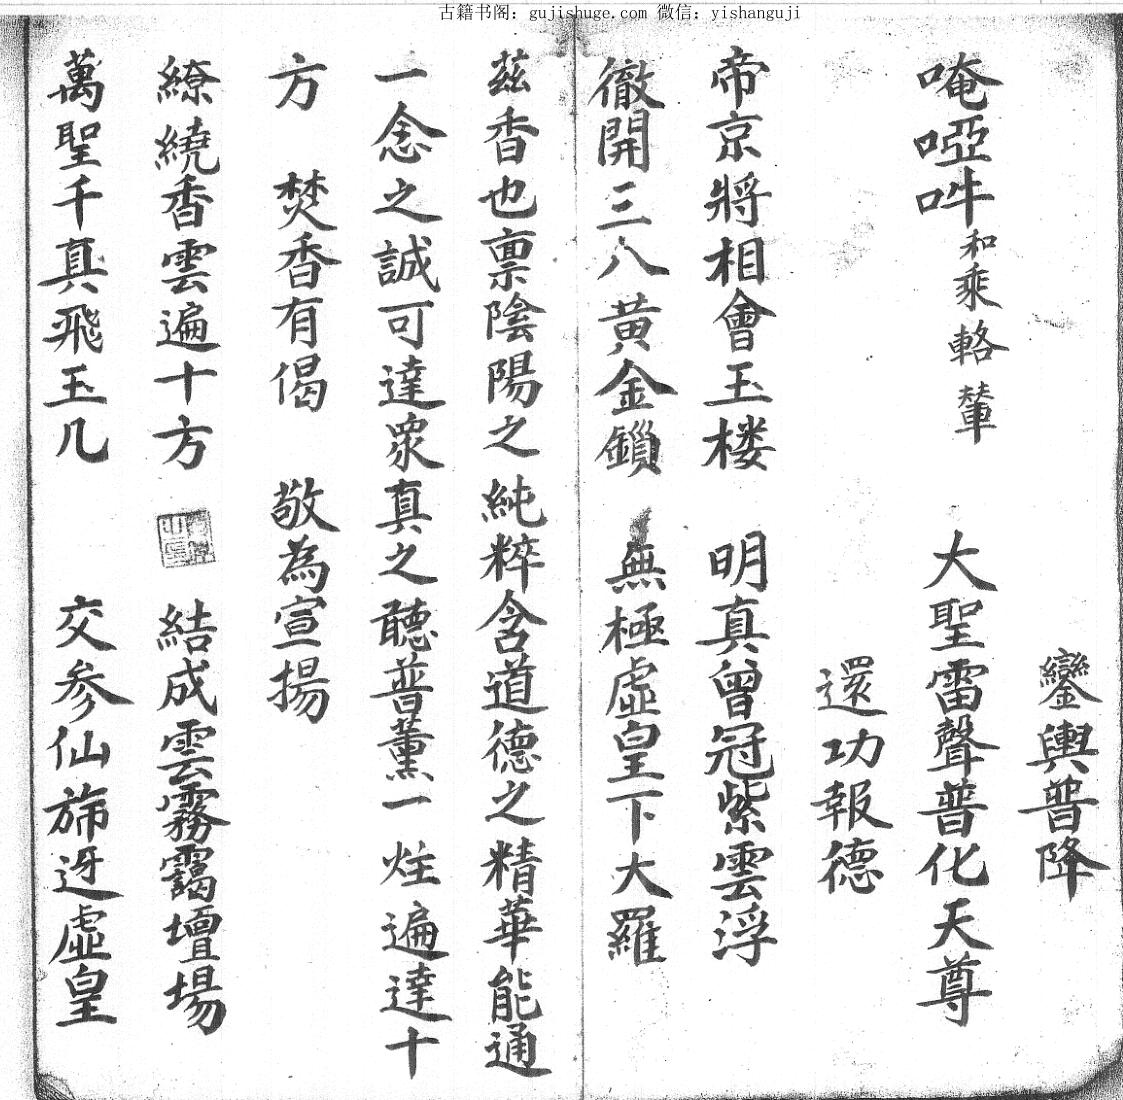 古籍书阁：gujishuge.com 微信：yishanguji
鑾輿普降
唵啞吽和乘輅輦 大聖雷聲普化天尊
還功報德
帝京將相會玉楼 明真曾冠紫雲浮
徹開三八黄金鎻 無極虛皇下大羅
茲香也禀陰陽之純粹含道德之精華能通
一念之誠可達衆真之聽普薰一炷遍達十
方 焚香有偈 敬為宣揚
繚繞香雲遍十方 結成雲霧靄壇場
萬聖千真飛玉几 交参仙斾迓虛皇